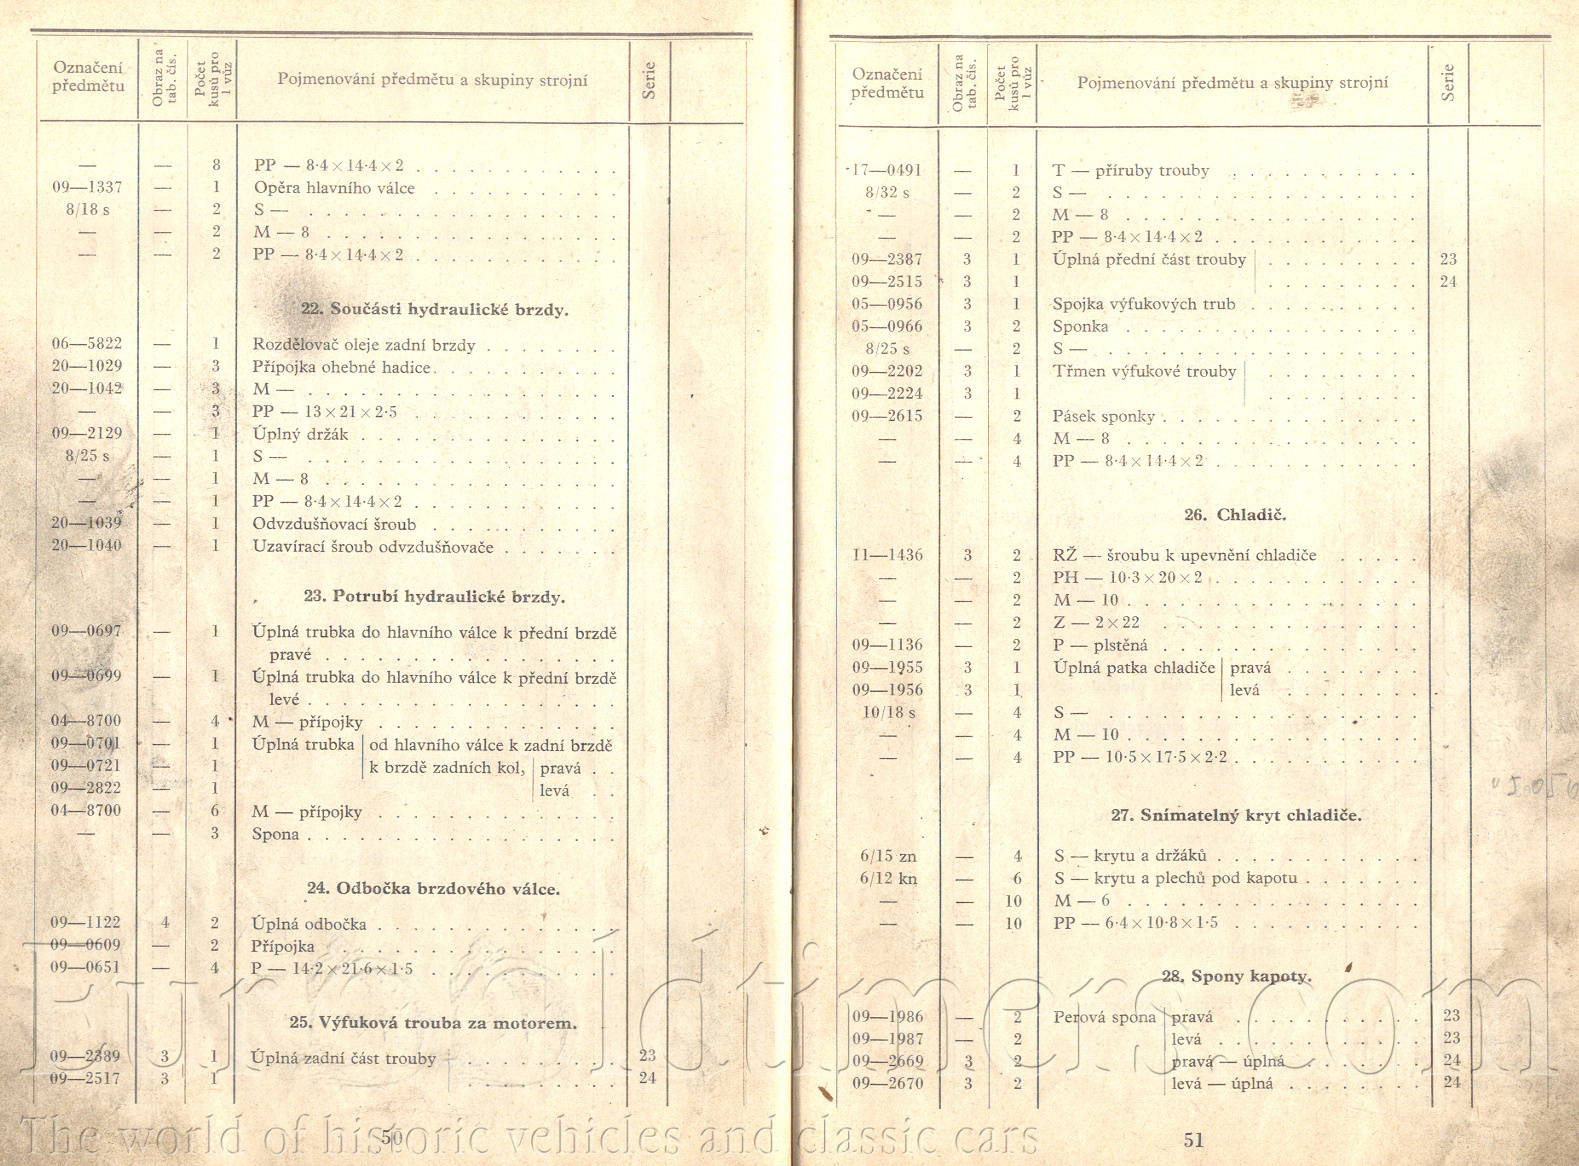 Označení předmětu | Obraz na tab. čís. | Počet kusů pro 1 vůz | Pojmenování předmětu a skupiny strojní | Serie
— — 8 PP — 8·4 × 14·4 × 2
09—1337 — 1 Opěra hlavního válce
8/18 s — 2 S —
— — 2 M — 8
— — 2 PP — 8·4 × 14·4 × 2
22. Součásti hydraulické brzdy.
06—5822 — 1 Rozdělovač oleje zadní brzdy
20—1029 — 3 Přípojka ohebné hadice
20—1042 — 3 M —
— — 3 PP — 13 × 21 × 2·5
09—2129 — 1 Úplný držák
8/25 s — 1 S —
— — 1 M — 8
— — 1 PP — 8·4 × 14·4 × 2
20—1039 — 1 Odvzdušňovací šroub
20—1040 — 1 Uzavírací šroub odvzdušňovače
23. Potrubí hydraulické brzdy.
09—0697 — 1 Úplná trubka do hlavního válce k přední brzdě
pravé
09—0699 — 1 Úplná trubka do hlavního válce k přední brzdě
levé
04—8700 — 4 M — přípojky
09—0701 — 1 Úplná trubka | od hlavního válce k zadní brzdě
09—0721 — 1 k brzdě zadních kol, | pravá
09—2822 — 1 levá
04—8700 — 6 M — přípojky
— — 3 Spona
24. Odbočka brzdového válce.
09—1122 4 2 Úplná odbočka
09—0609 — 2 Přípojka
09—0651 — 4 P — 14·2 × 21·6 × 1·5
25. Výfuková trouba za motorem.
09—2389 3 1 Úplná zadní část trouby 23
09—2517 3 1 24
50
Označení předmětu | Obraz na tab. čís. | Počet kusů pro 1 vůz | Pojmenování předmětu a skupiny strojní | Serie
17—0491 — 1 T — příruby trouby
8/32 s — 2 S —
— — 2 M — 8
— — 2 PP — 8·4 × 14·4 × 2
09—2387 3 1 Úplná přední část trouby 23
09—2515 3 1 24
05—0956 3 1 Spojka výfukových trub
05—0966 3 2 Sponka
8/25 s — 2 S —
09—2202 3 1 Třmen výfukové trouby
09—2224 3 1
09—2615 — 2 Pásek sponky
— — 4 M — 8
— — 4 PP — 8·4 × 14·4 × 2
26. Chladič.
11—1436 3 2 RŽ — šroubu k upevnění chladiče
— — 2 PH — 10·3 × 20 × 2
— — 2 M — 10
— — 2 Z — 2 × 22
09—1136 — 2 P — plstěná
09—1955 3 1 Úplná patka chladiče | pravá
09—1956 3 1 levá
10/18 s — 4 S —
— — 4 M — 10
— — 4 PP — 10·5 × 17·5 × 2·2
27. Snímatelný kryt chladiče.
6/15 zn — 4 S — krytu a držáků
6/12 kn — 6 S — krytu a plechů pod kapotu
— — 10 M — 6
— — 10 PP — 6·4 × 10·8 × 1·5
28. Spony kapoty.
09—1986 — 2 Perová spona | pravá 23
09—1987 — 2 levá 23
09—2669 3 2 pravá — úplná 24
09—2670 3 2 levá — úplná 24
51
Eurooldtimers.com
The world of historic vehicles and classic cars